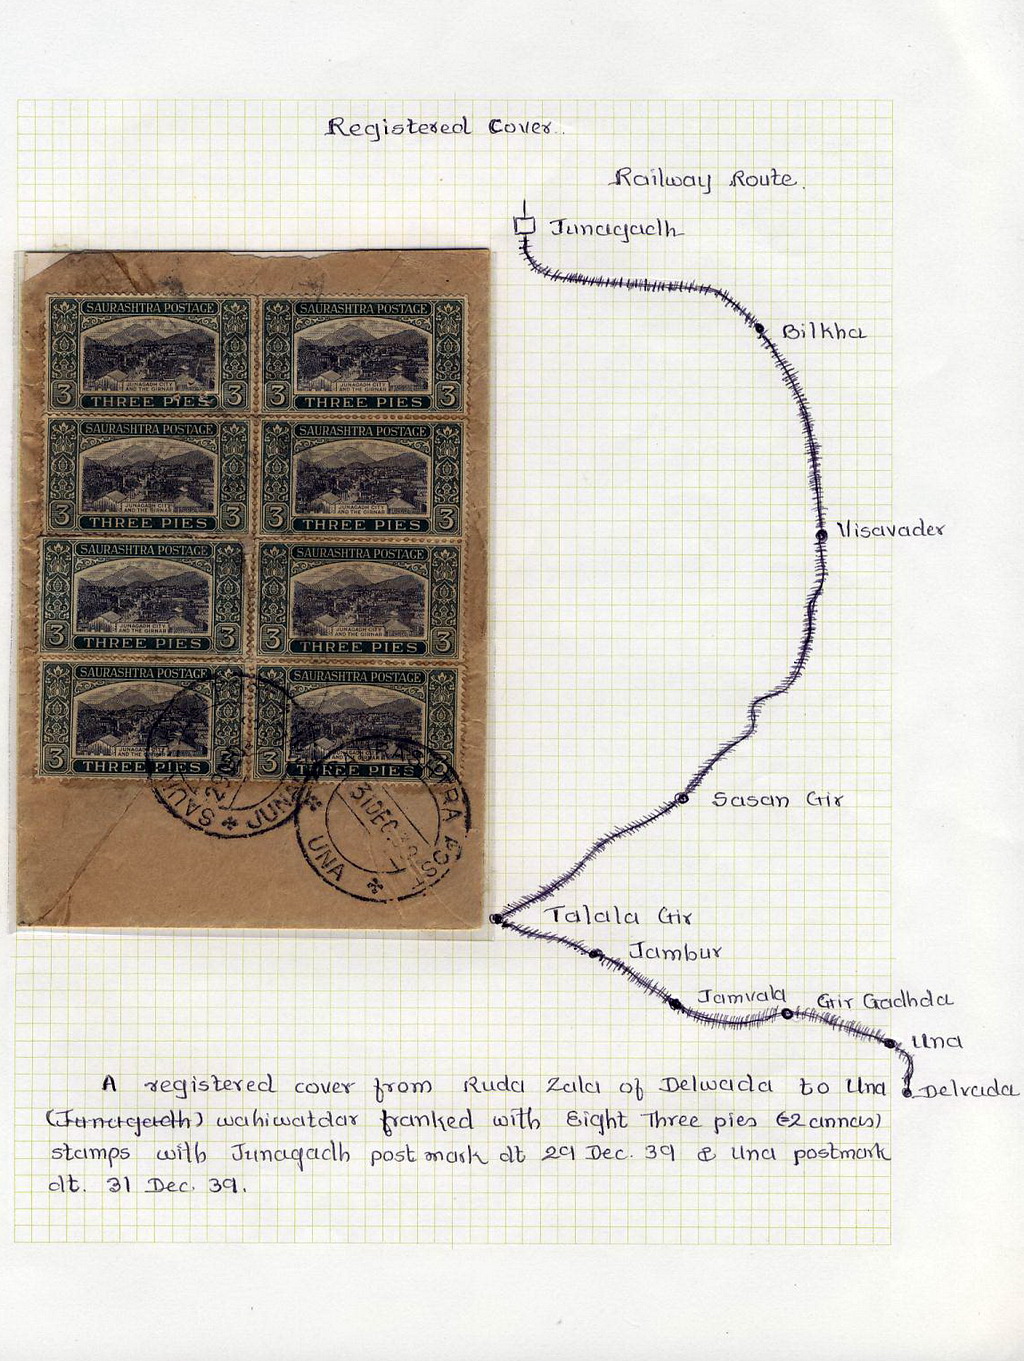 Registered Cover..
Railway Route.
Junagadh
Bilkha
Visavader
Sasan Gir
Talala Gir
Jambur
Jamvala
Gir Gadhda
Una
Delvada
SAURASHTRA POSTAGE
JUNAGADH CITY
AND THE GIRNAR
3 THREE PIES 3
SAURASHTRA POSTAGE
JUNAGADH CITY
AND THE GIRNAR
3 THREE PIES 3
SAURASHTRA POSTAGE
JUNAGADH CITY
AND THE GIRNAR
3 THREE PIES 3
SAURASHTRA POSTAGE
JUNAGADH CITY
AND THE GIRNAR
3 THREE PIES 3
SAURASHTRA POSTAGE
JUNAGADH CITY
AND THE GIRNAR
3 THREE PIES 3
SAURASHTRA POSTAGE
JUNAGADH CITY
AND THE GIRNAR
3 THREE PIES 3
SAURASHTRA POSTAGE
JUNAGADH CITY
AND THE GIRNAR
3 THREE PIES 3
SAURASHTRA POSTAGE
JUNAGADH CITY
AND THE GIRNAR
3 THREE PIES 3
31 DEC
UNA
A registered cover from Ruda Zala of Delwada to Una
(Junagadh) wahiwatdar franked with Eight Three pies (2 annas)
stamps with Junagadh post mark dt 29 Dec. 39 & Una postmark
dt. 31 Dec. 39.